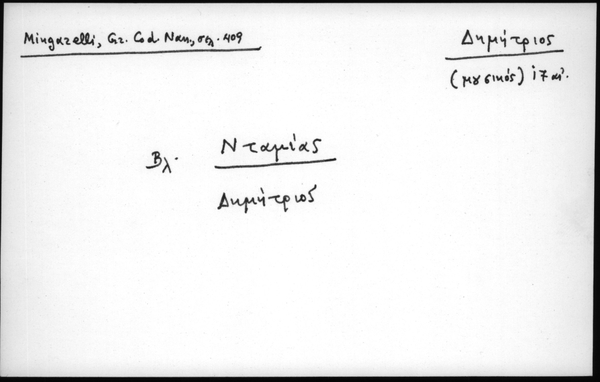 Mingarelli, Gr. Cod Nan., σελ. 409
Δημήτριος
(μουσικός) 17 αἰ.
Βλ. Νταμίας
Δημήτριος